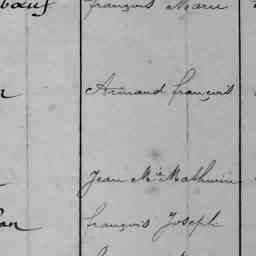 bœuf françois Marie
Armand françois
Jean Mie Mathurin
françois Joseph